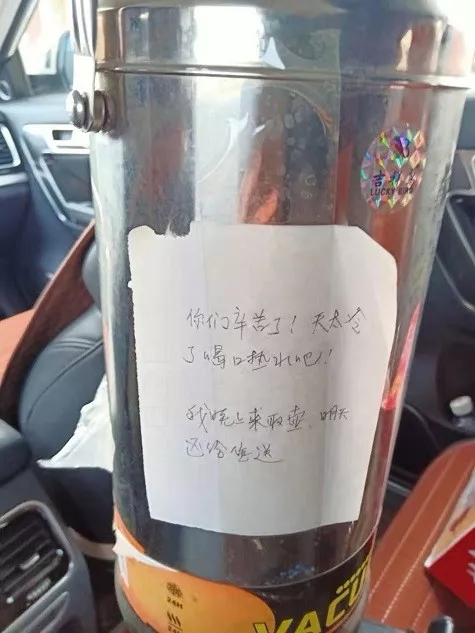 吉祥鸟
LUCKY BIRD
你们辛苦了！天太冷
了喝口热水吧！
我晚上来取壶，明天
还给您送
24H
24H
VACU